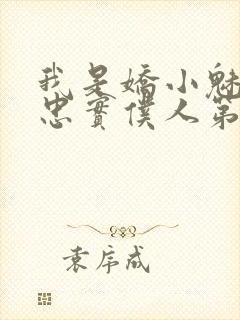 我是嬌小魅
忠實僕人第
袁序成